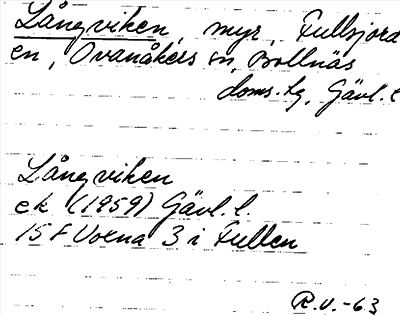 Långviken, myr, Fullsjord
en, Ovanåkers sn, Bollnäs
doms.sg, Gävl.l
Långviken
ek (1959) Gävl.l.
15F Voxna 3 i Fullen
R.V.-63